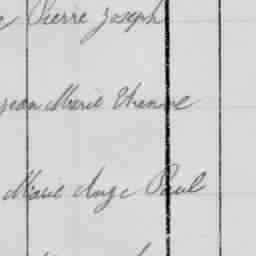 Pierre Joseph
Jean Marie Etienne
Marie Ange Paul